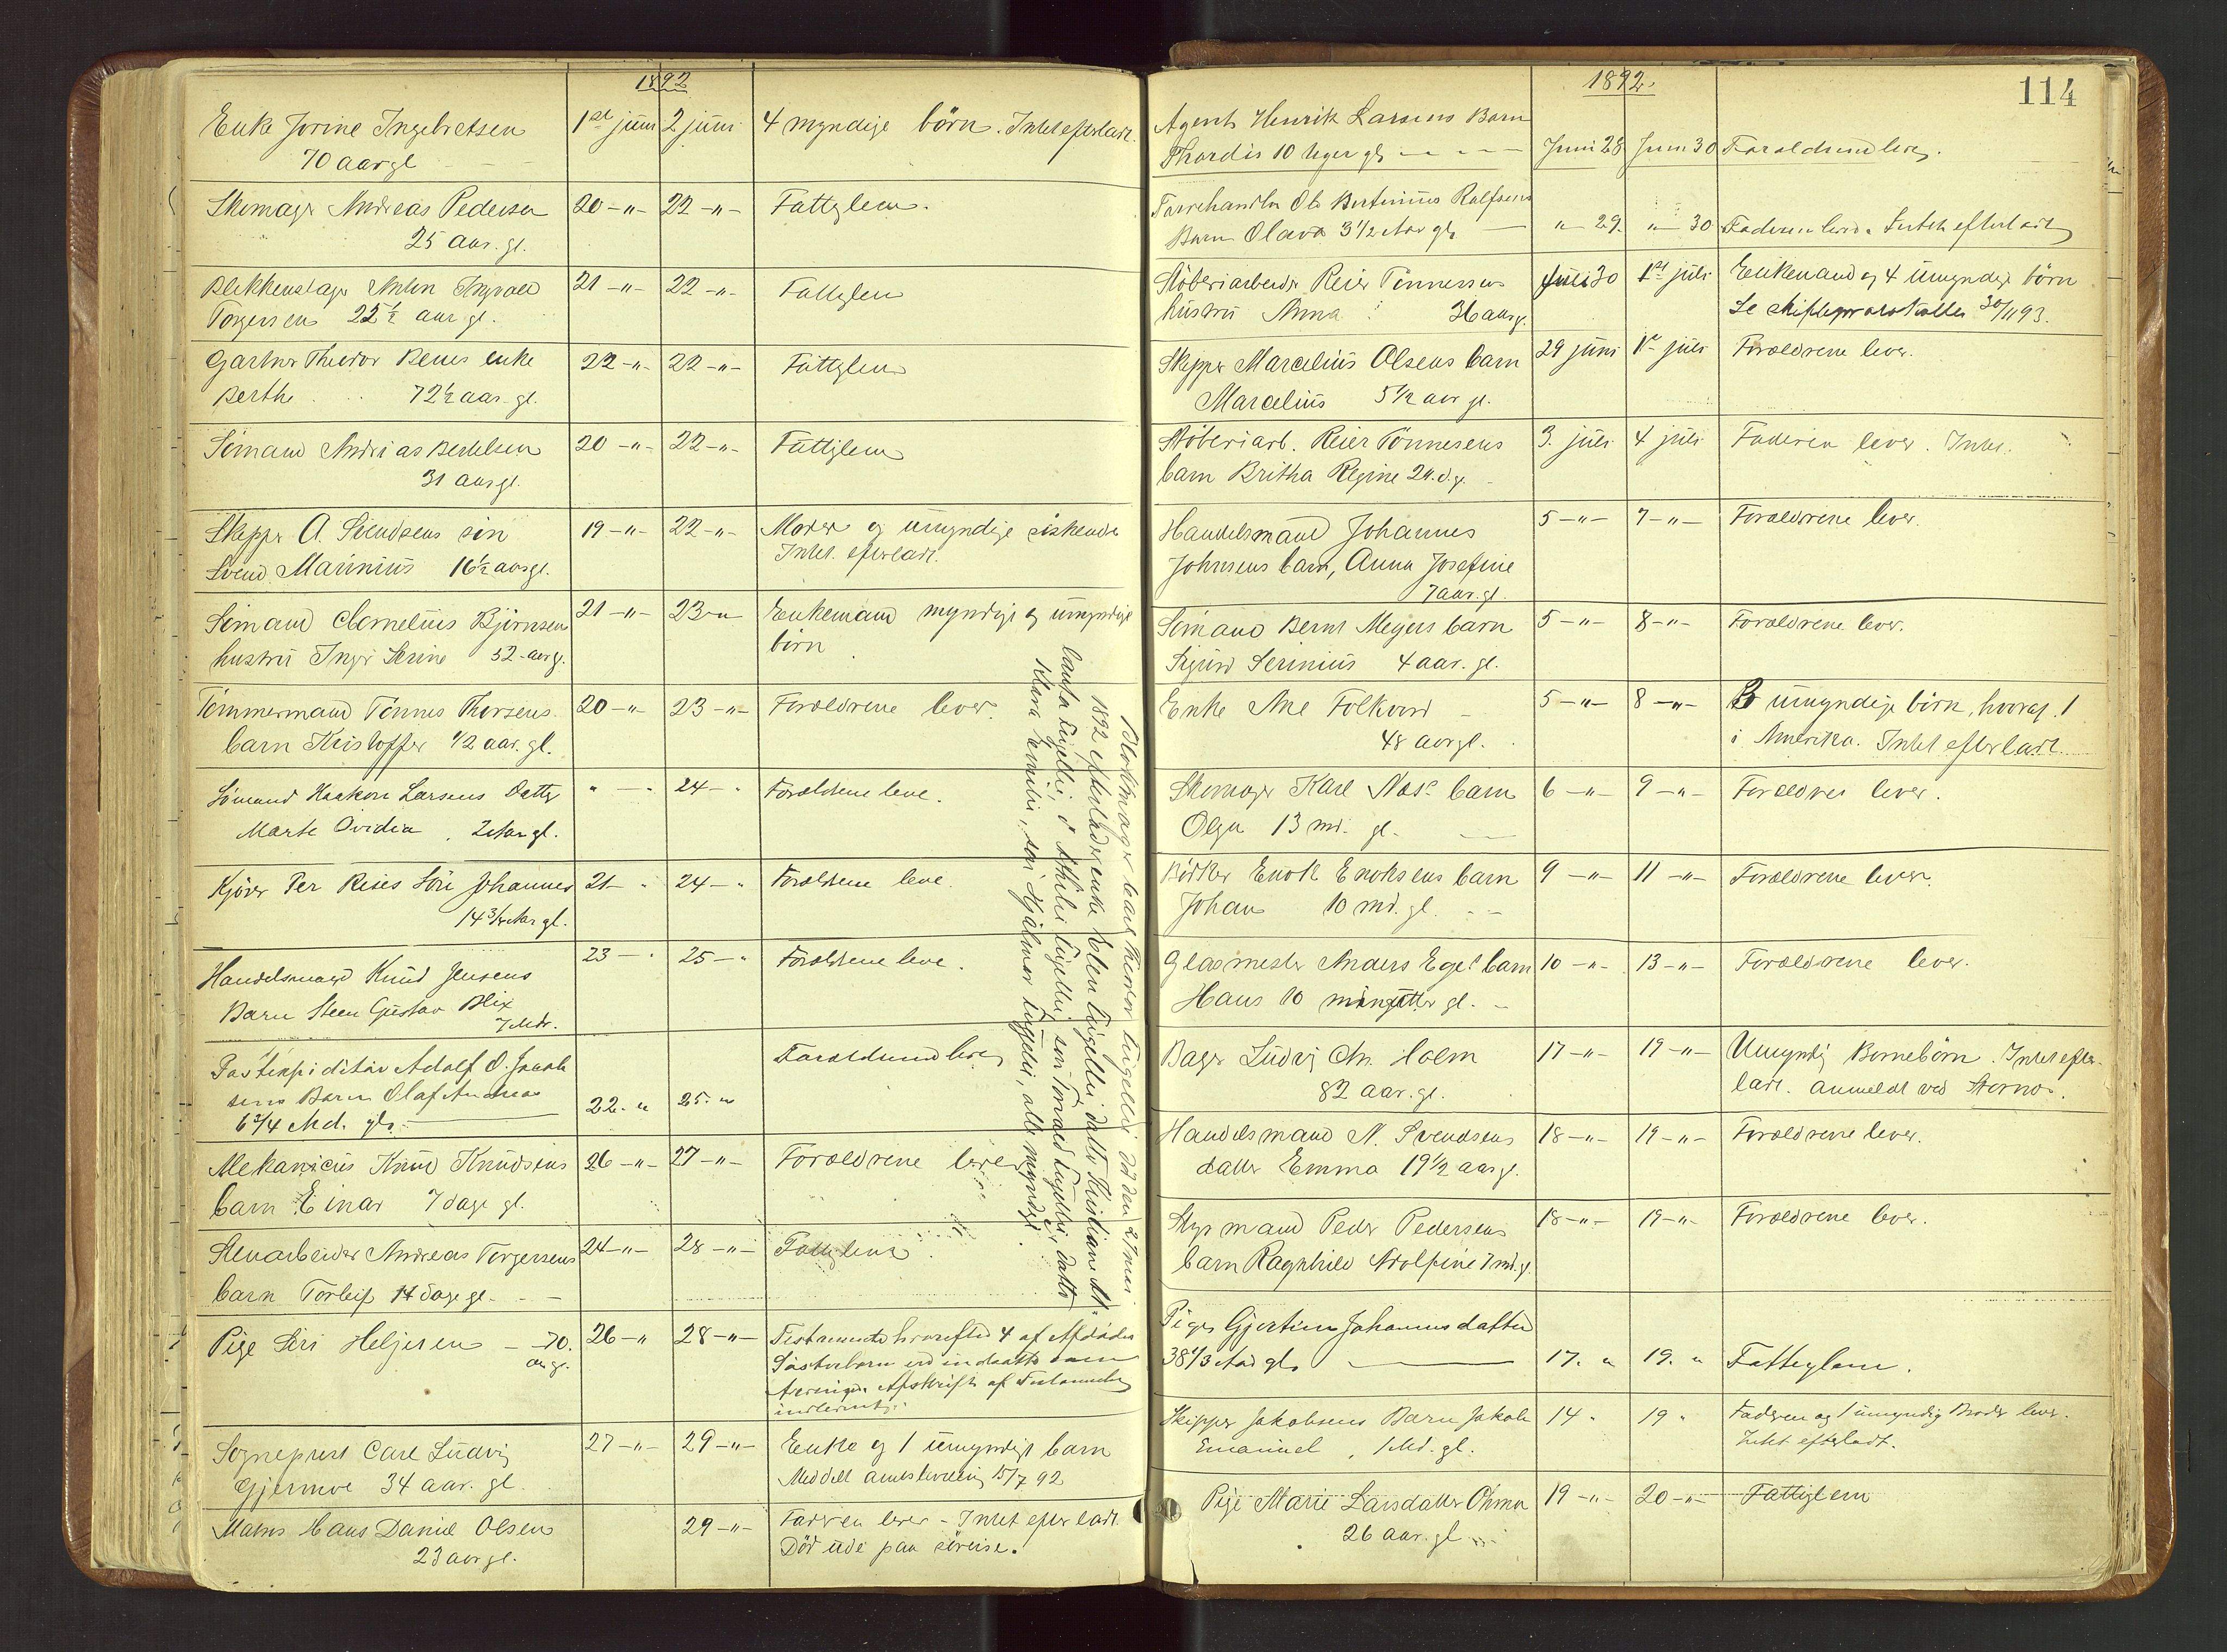 1892
Enke Jorine Ingebretsen 1ste juni 2 juni 4 myndige börn. Intet efterladt.
70 aar gl
Skomager Andreas Pedersen 20 -"- 22 -"- Fattiglem.
25 aar. gl.
Blikkenslager Anton Ingvald 21 -"- 22 -"- Fattiglem
Torgersens 22½ aar gl.
Gartner Theodor enke 22 -"- 22 -"- Fattiglem
Berthe 72½ aar. gl.
Sömand Andreas Bertelsen 20 -"- 22 -"- Fattiglem
31 aar gl.
Skipper A. Svendsens sön 19 -"- 22 -"- Moder og umyndige söskende
Svend Marinius 16½ aar gl. Intet efterladt.
Sömand Cornelius Björnsens 21 -"- 23 -"- Enkemand myndige og umyndige
hustru Inger Serine 52 aar g. börn
Tömmermand Tönnes Thorsens 20 -"- 23 -"- Forældrene lever.
barn Kristoffer ½ aar. gl.
Sömand Haakon Larsens Datter " - " 24 - " Forældrene leve.
Marte Ovidia, 2 Aar gl.
Per Reies Sön Johannes 21 - " 24 - " Forældrene leve.
14¾ Aar gl.
Handelsmand Knud Jensens 23 - " 25 - " Forældrene leve.
Barn Steen Gustav Blix
7 Mdr.
Postexpeditör Adolf O. Jacob Forældrene lever
sens Barn Olaf Andreas 22. " 25. "
6¾ Md. gl.
Mekanicus Knud Knudsens 26 -"- 27 -"- Forældrene lever
barn Einar 7 dage gl.
Stenarbeider Andreas Torgersens 24 -"- 28 -"- Fattiglem
barn Torleif 14 dage gl.
Pige Siri Heljesen - 70. 26 -" 28 -"- Testamente hvorefter 4 af Afdödes
aar gl. Sösterbörn er indsatte som
Arvinger. Afskrift af Testamentet
indleveret.
Sogneprest Carl Ludvig 27 -"- 29 -"- Enke og 1 umyndigt barn
Gjermoe 34 aar. gl. Meddelt 15/7 92
Matros Hans Daniel Olsen 29 -"- Faderen lever - Intet efterladt.
23 aar gl. Död ude paa söreise.
Blokkmager Carl Theodor död den 27 mai
1892 efterlader enke Helen datter Kristiane M.
som datter
Klara Emilie, sön Hjalmar alle myndige.
1892.
114
Agent Henrik Larsens Barn
Thordis 10 Uger gl. Juni 28 Juni 30 Forældrene lever.
Torvehandler Ole Bertinius Rolfsens
Barn Olava 3½ Aar gl. " 29. " 30 Faderen lever. Intet efterladt
Stöberiarbeider Reier Tönnesens Juni 30 1ste juli Enkemand og 4 umyndige börn
hustru Anna 36 aar g. Se skifteprotokollen 30/11 93.
Skipper Marcelius Olsens barn 29 juni 1ste juli Forældrene lever.
Marcelius 5½ aar gl.
Stöberiarb. Reier Tönnesens 3. juli 4 juli Faderen lever. Intet.
barn Britha Regine 24. d. g.
Handelsmand Johannes 5 -"- 7 -"- Forældrene lever.
Johnsens barn, Anna Josefine
7 aar. gl.
Sömand Bernt Meyers barn 5 -"- 8 -"- Forældrene lever.
Sigurd Serinius 4 aar. gl.
Enke Ane Folkvord 5 -"- 8 -"- umyndige börn, hvoraf 1
48 aar gl. i Amerika. Intet efterladt.
Skomager Karl Næss barn 6 -"- 9 -"- Forældrene lever.
Olga 13 md. gl.
Bödker Enok Enoksens barn 9 -"- 11 -"- Forældrene lever.
Johan 10 md. gl.
Glasmester Anders Eges barn 10 -"- 13 -"- Forældrene lever.
Hans 10 minutter gl.
Bager Ludvig Chr. Holm 17 -"- 19 -"- Umyndig Börnebörn. Intet efter-
82 aar. gl. ladt. anmeldt ved
Handelsmand N. Svendsens 18 -"- 19 -"- Forældrene lever.
datter Emma 19½ aar g.
Styrmand Peder Pedersens 18 -"- 19 -"- Forældrene lever.
barn Ragnhild Adolfine 7 md. g.
Pige Gjertine Johannesdatter
38⅓ Aar gl. 17. " 19. " Fattiglem.
Skipper Jakobsens Barn Jakob 14 " 19 " Faderen og 1 umyndig Broder lever.
Emanuel, 1 Md. gl. Intet efterladt.
Pige Marie Larsdatter 19 -"- 20 -"- Fattiglem
26 aar. gl.